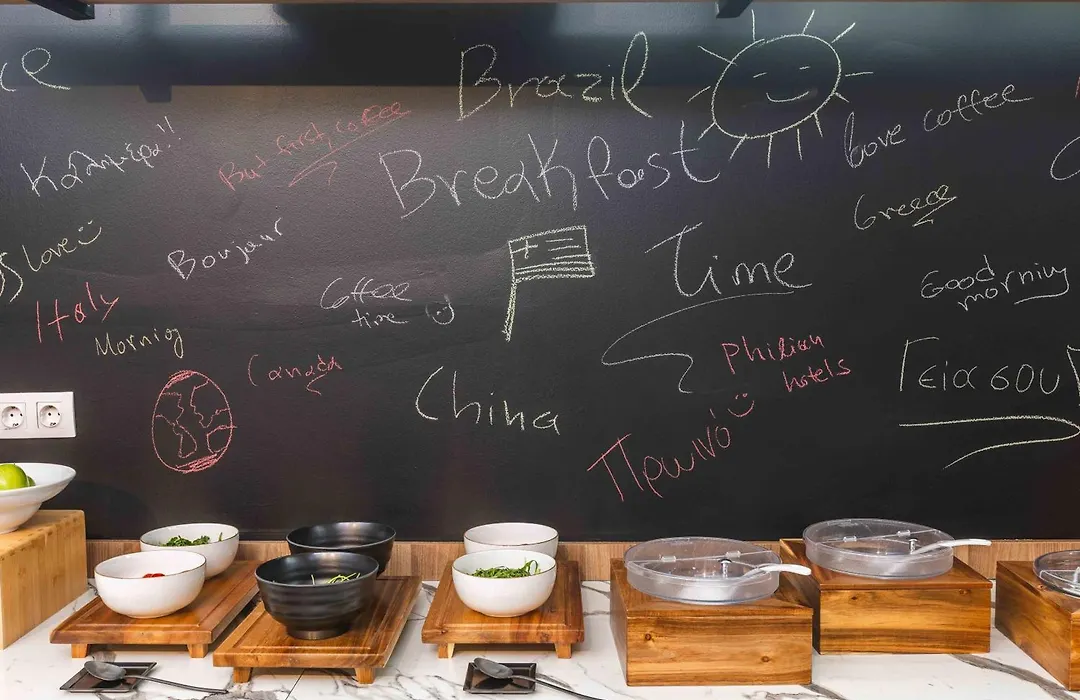 Brazil
love coffee
But first coffee
Καλημέρα!!
Breakfast
Greece
love
Boujour
Time
Good
morning
Italy
Coffee
time
Morning
Philian
hotels
Canada
Γεια σου
China
Πρωινό